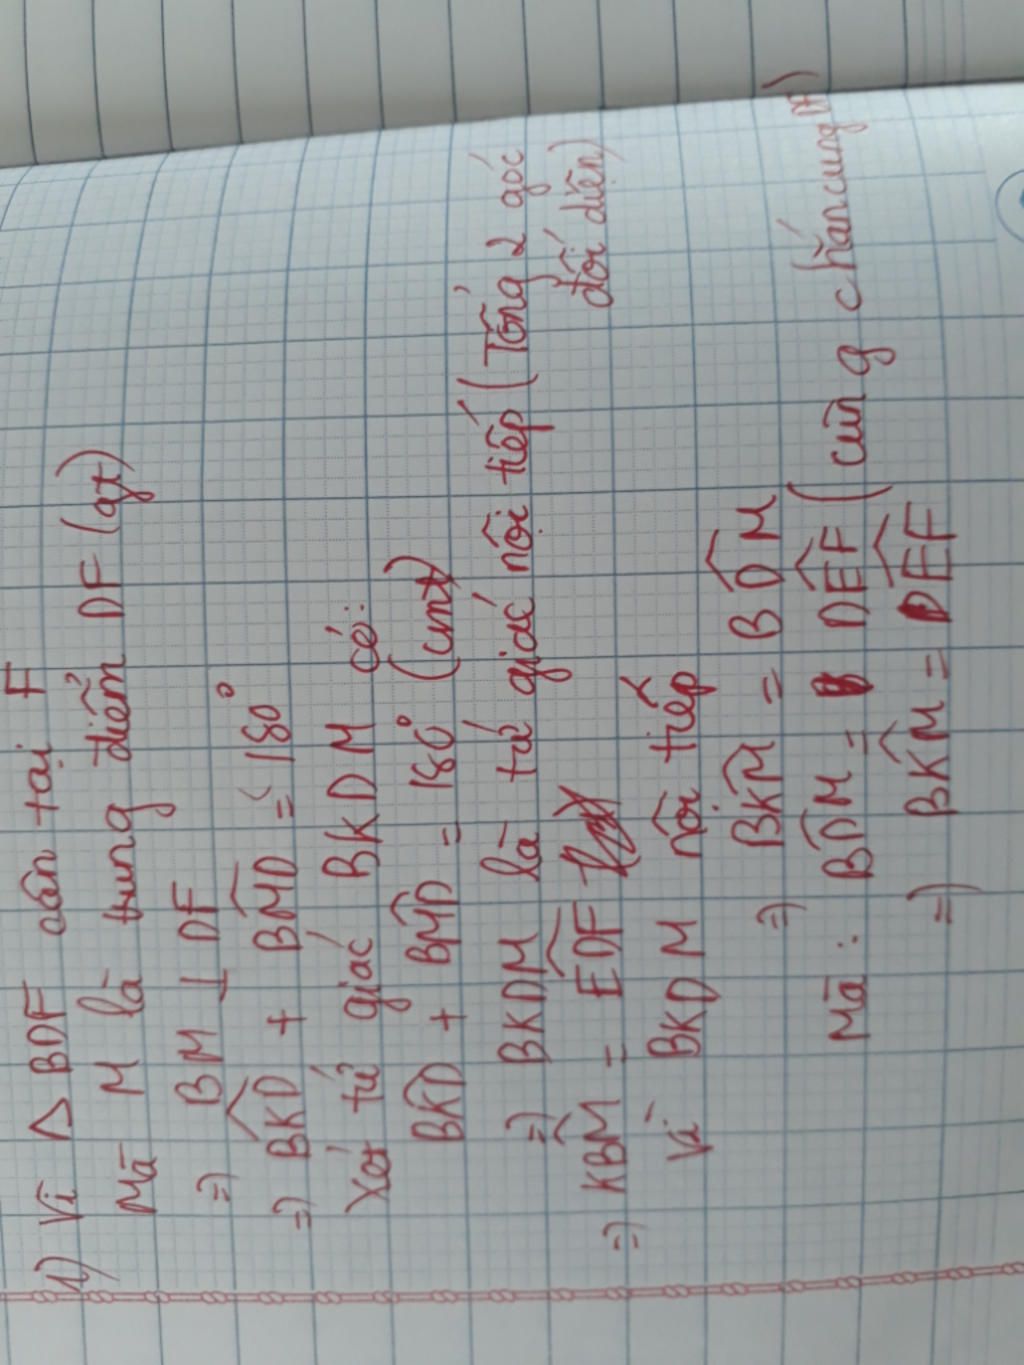 1) Vì △ BDF cân tại F
Mà M là trung điểm DF (gt)
=) BM ⊥ DF
=) BK̂D + BM̂D = 180°
Xét tứ giác BKDM có:
BK̂D + BM̂D = 180° (cmt)
=) BKDM là tứ giác nội tiếp (Tổng 2 góc
đối diện)
=) KB̂M = ED̂F
Vì BKDM nội tiếp
=) BK̂M = BD̂M
Mà: BD̂M = DÊF (cùng chắn cung DF)
=) BK̂M = DÊF